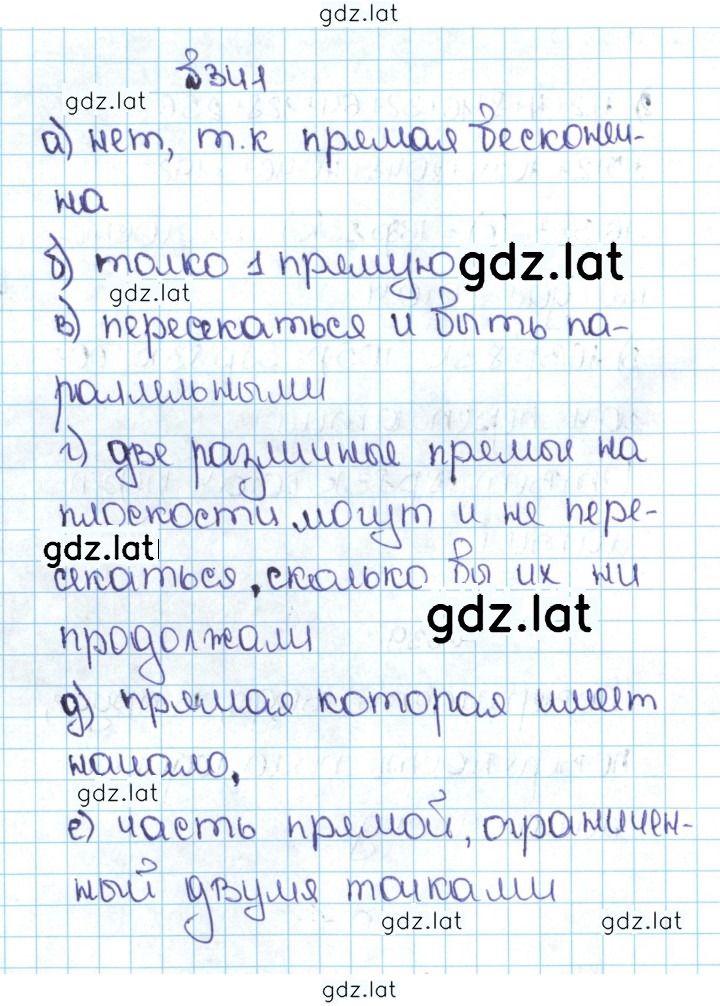 gdz.lat
в341
gdz.lat
а) нет, т.к прямая бесконеч-
на
б) толко 1 прямую gdz.lat
gdz.lat
в) пересекаться и быть па-
раллельными
г) две различные прямые на
плоскости могут и не пере-
gdz.lat
секаться, сколько вы их ни
gdz.lat
продолжали
д) прямая которая имеет
начало,
gdz.lat
е) часть прямой, ограничен-
ный двумя точками
gdz.lat gdz.lat
gdz.lat